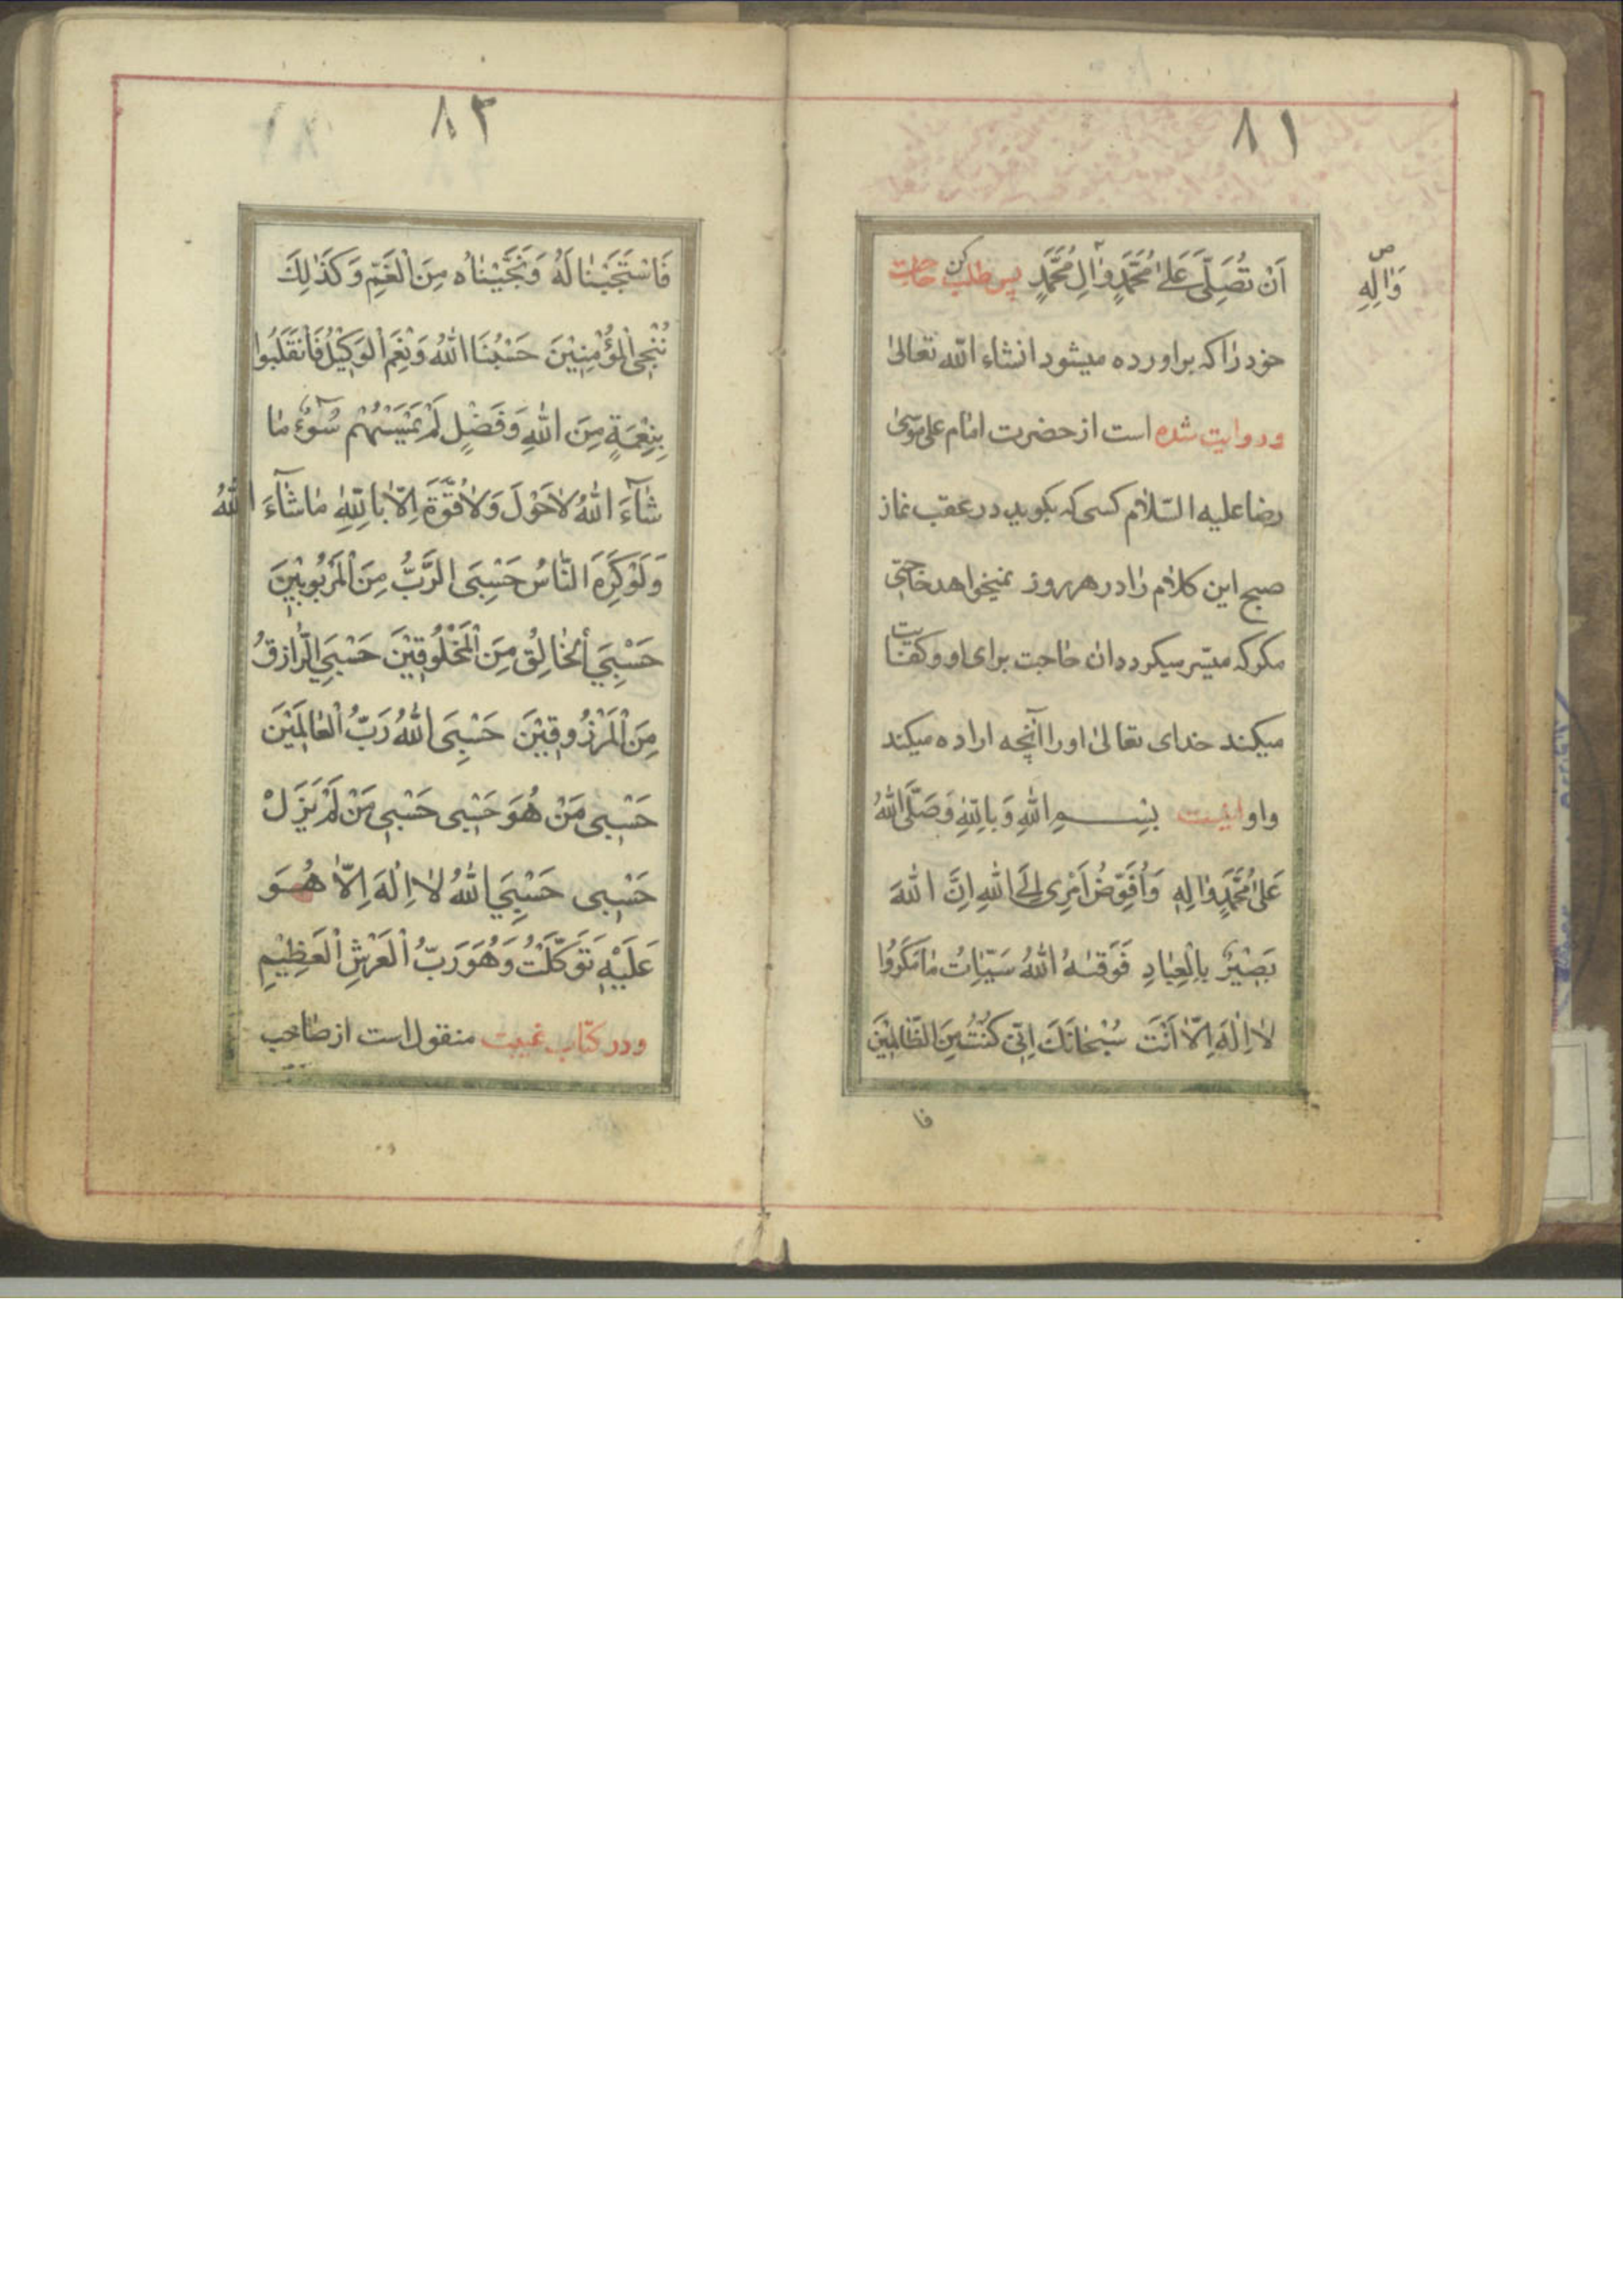 ٨١
اَنْ تُصَلِّیَ عَلیٰ مُحَمَّدٍ وٰالِ مُحَمَّدٍ پس طلب کن حاجت
وَاٰلِهِ ص
خود را که براورده میشود انشاء الله تعالیٰ
و روایت شده است از حضرت امام علی موسی
رضا علیه السّلام کسی که بکوید در عقب نماز
صبح این کلام را در هر روز نمیخواهد حاجتی
مکر که میسّر میکردد ان حاجت برای او و کفایت
میکند خدای تعالیٰ او را آنچه اراده میکند
و او اینست بِسْمِ اللهِ وَ بِاللهِ وَصَلَّی اللهُ
عَلیٰ مُحَمَّدٍ وٰالِهِ وَاُفَوِّضُ اَمْرِی اِلَی اللهِ اِنَّ اللهَ
بَصِیْرٌ بِالْعِبٰادِ فَوَقٰیهُ اللهُ سَیِّئٰاتُ مٰا مَکَرُوْا
لٰا اِلٰهَ اِلّٰا اَنْتَ سُبْحٰانَکَ اِنّی کُنْتُ مِنَ الظّٰالِمِیْنَ
فا
٨٢
فَاسْتَجَبْنٰا لَهُ وَنَجَّیْنٰاهُ مِنَ الْغَمِّ وَکَذٰلِکَ
نُنْجِی الْمُؤْمِنِیْنَ حَسْبُنَا اللهُ وَنِعْمَ الْوَکِیْلُ فَانْقَلَبُوا
بِنِعْمَةٍ مِنَ اللهِ وَفَضْلٍ لَمْ یَمْسَسْهُمْ سُوْٓءٌ مٰا
شٰآءَ اللهُ لٰاحَوْلَ وَلٰاقُوَّةَ اِلّٰا بِاللهِ مٰاشٰآءَ اللهُ
وَلَوْکَرِهَ النّٰاسُ حَسْبِیَ الرَّبُّ مِنَ الْمَرْبُوبِیْنَ
حَسْبِیَ الْخٰالِقُ مِنَ الْمَخْلُوقِیْنَ حَسْبِیَ الرّٰازِقُ
مِنَ الْمَرْزُوقِیْنَ حَسْبِیَ اللهُ رَبُّ الْعٰالَمِیْنَ
حَسْبِی مَنْ هُوَ حَسْبِی حَسْبِی مَنْ لَمْ یَزَلْ
حَسْبِی حَسْبِیَ اللهُ لٰا اِلٰهَ اِلّٰا هُوَ
عَلَیْهِ تَوَکَّلْتُ وَهُوَ رَبُّ الْعَرْشِ الْعَظِیْمِ
و در کتاب غیبت منقول است از صاحب